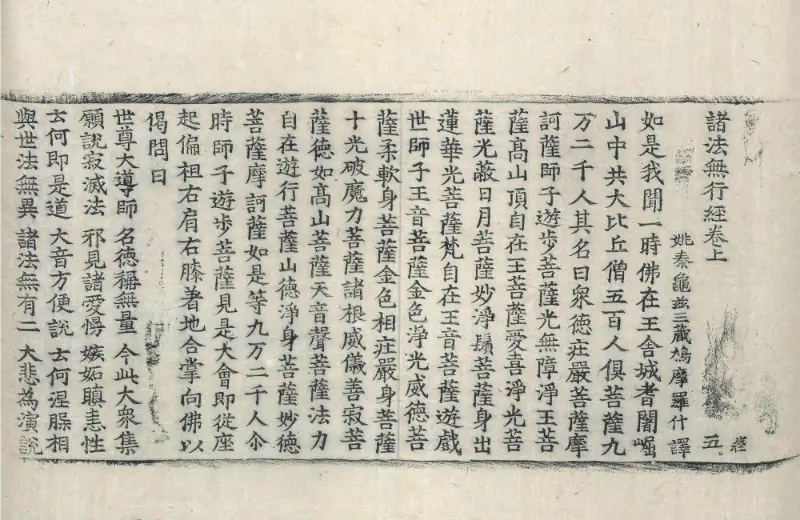 諸法無行經卷上　五
姚秦龜茲三藏鳩摩羅什譯
如是我聞一時佛在王舍城耆闍崛
山中共大比丘僧五百人俱菩薩九
万二千人其名曰衆德疘嚴菩薩摩
訶薩師子遊步菩薩光無障淨王菩
薩髙山頂自在王菩薩愛喜淨光菩
薩光蔽日月菩薩妙淨鬚菩薩身出
蓮華光菩薩梵自在王音菩薩遊戲
世師子王音菩薩金色淨光威德菩
薩柔軟身菩薩金色相疘嚴身菩薩
十光破魔力菩薩諸根威儀善寂菩
薩德如髙山菩薩天音聲菩薩法力
自在遊行菩薩山德淨身菩薩妙德
菩薩摩訶薩如是等九万二千人尒
時師子遊步菩薩見是大會即從座
起偏袒右肩右膝著地合掌向佛以
偈問曰
世尊大導師　名德稱無量　今此大衆集
願說寂滅法　邪見諸愛慢　嫉妬瞋恚性
云何即是道　大音方便說　云何涅槃相
與世法無異　諸法無有二　大悲為演說